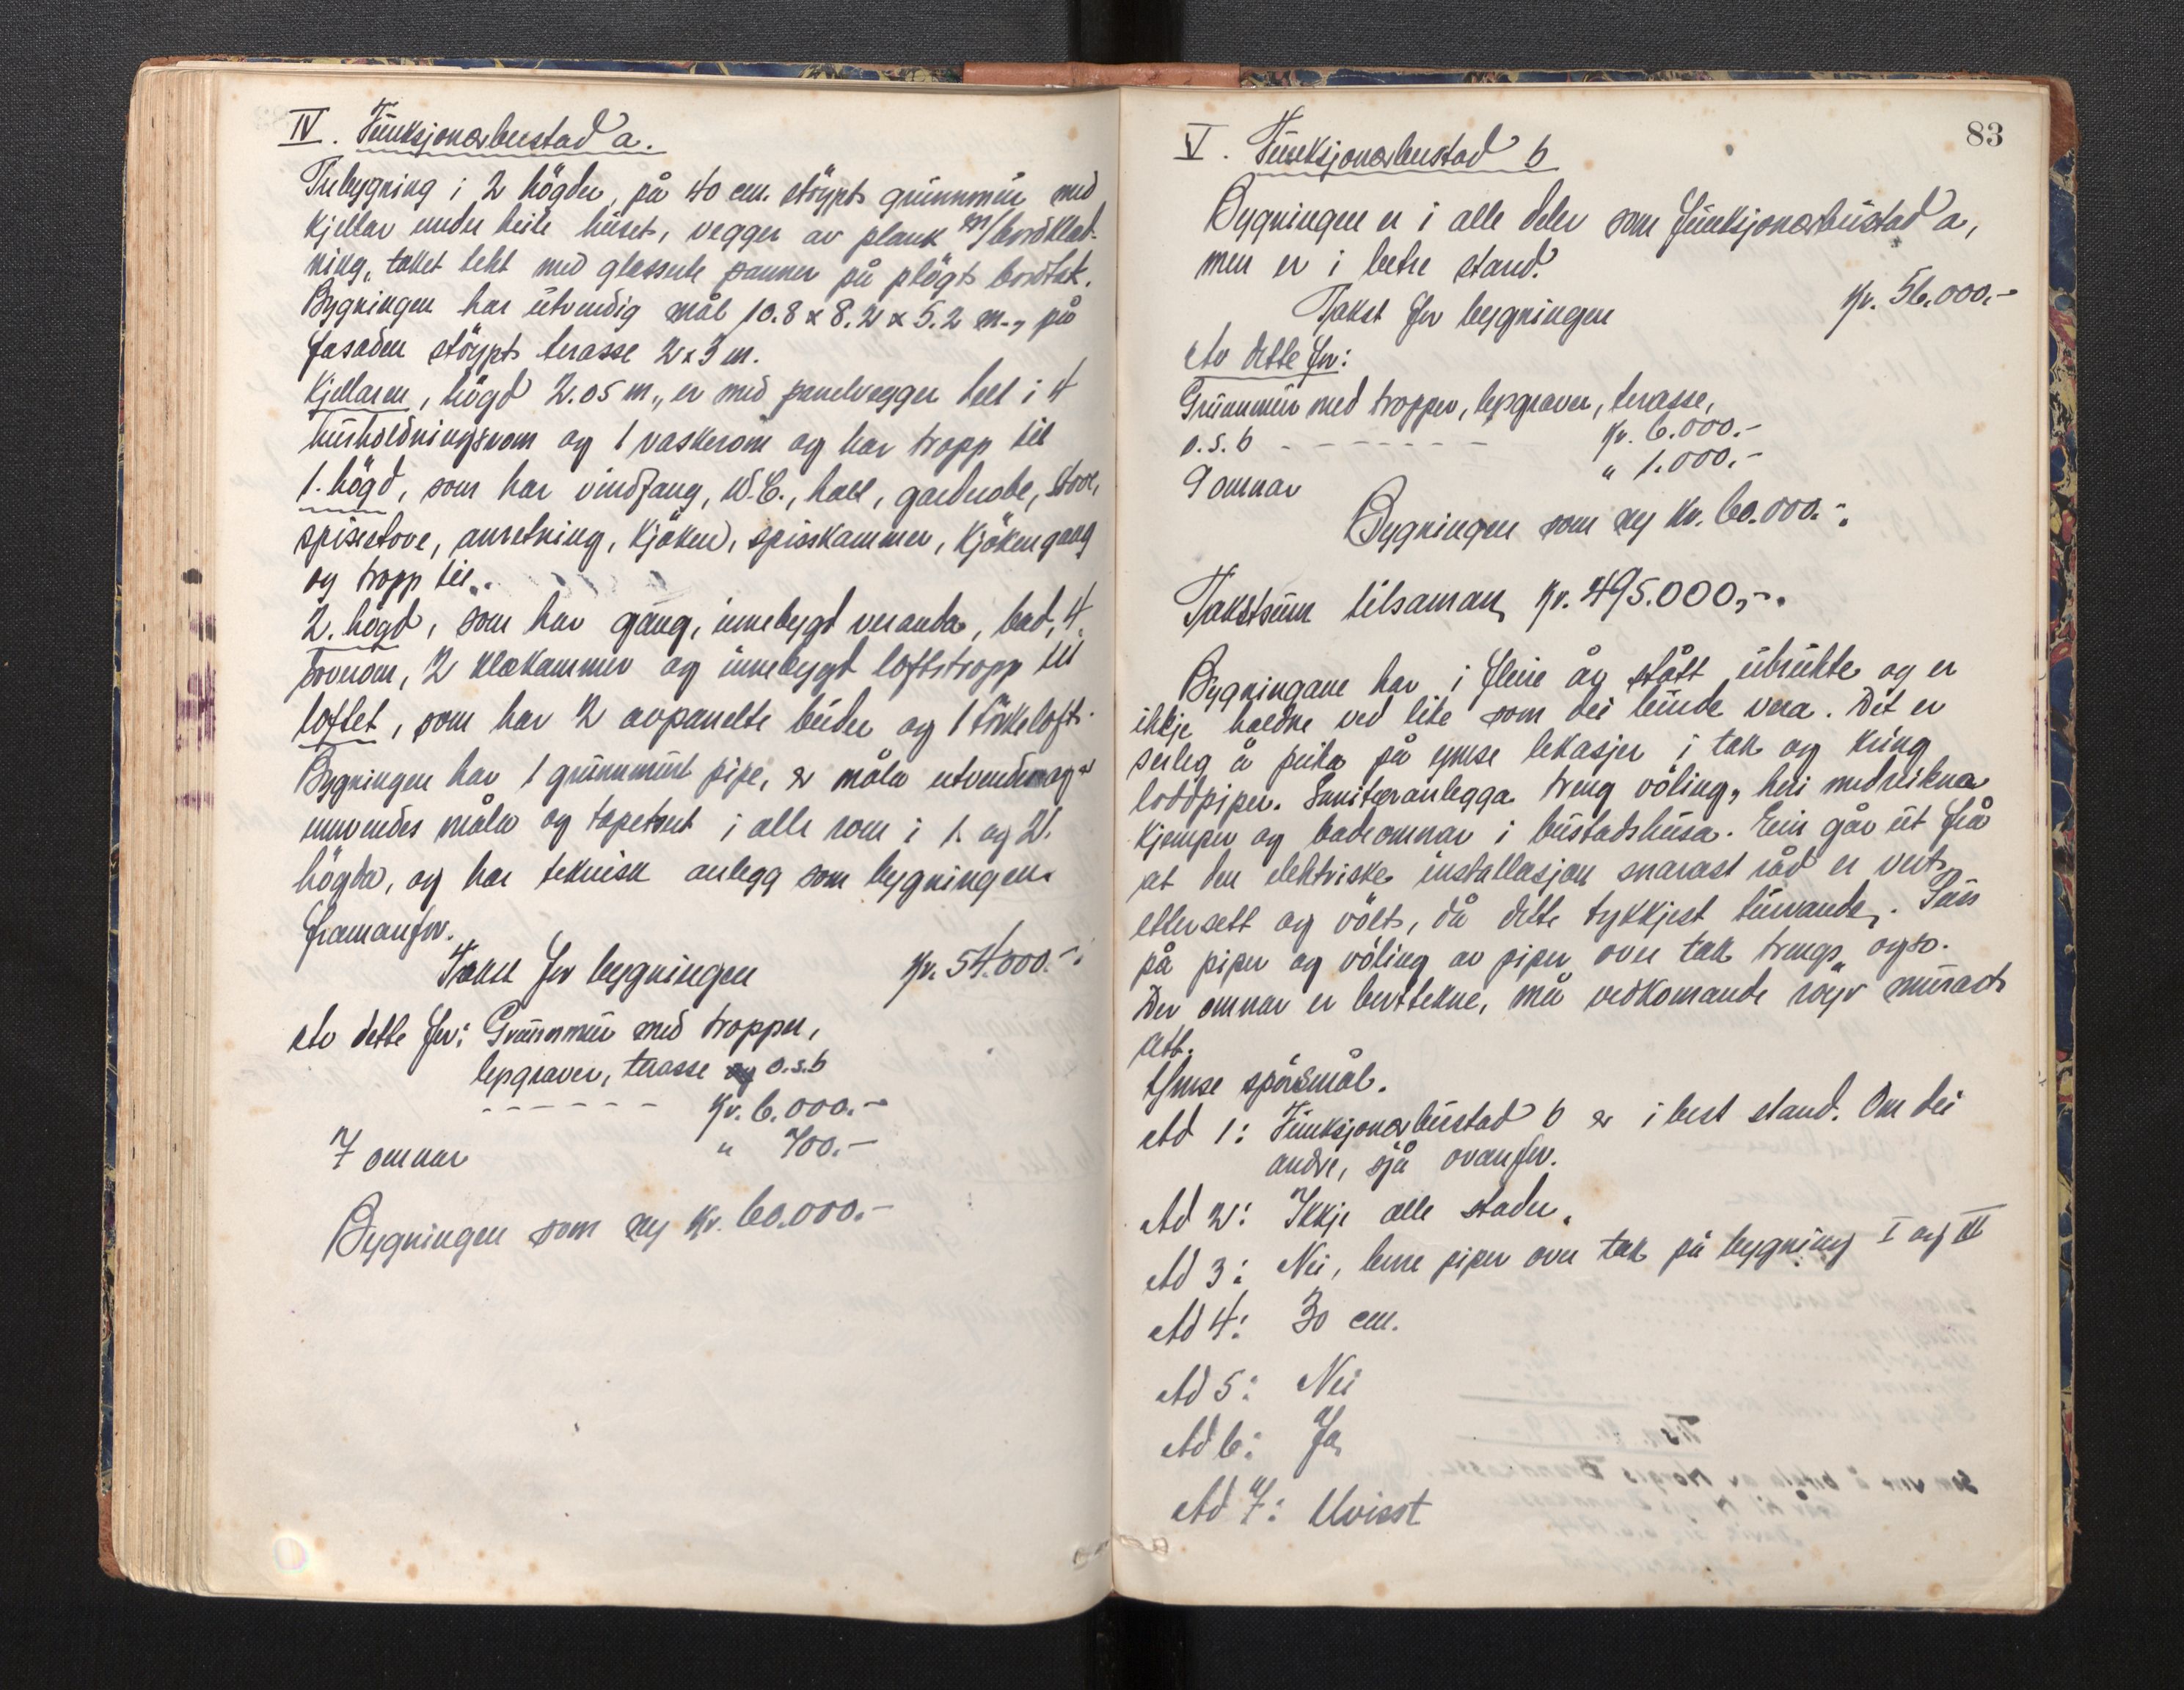 IV. Funksjonærbustad a.
Trebygning i 2 högder, på 40 cm. stöypt grunnmur med
kjellar under heile huset, vegger av plank m/bordklæd-
ning, taket tekt med glasserte panner på plögt bordtak.
Bygningen har utvendig mål 10.8 x 8.2 x 5.2 m., på
fasaden stöypt terasse 2x3 m.
Kjellaren, högd 2.05 m., er med panelvegger delt i 4
husholdningsrom og 1 vaskerom og har tropp til
1. högd, som har vindfang, W.C., hall, garderobe, stove,
spisestove, anretning, kjöken, spiskammer, kjökengang
og tropp til.
2. högd, som har gang, innebygd veranda, bad, 4
soverom, 2 klækammer og innebygd loftstropp til
loftet, som har 2 avpanelte buder og 1 törkeloft.
Bygningen har 1 grunnmurt pipe, er måla utvendes og
innvendes måla og tapetsert i alle rom i 1. og 2.
högda, og har teknisk anlegg som bygningen
framanfor.
Takst for bygningen kr. 54.000.-
Av dette for: Grunnmur med tropper,
lysgraver, terasse og o.s.b
- - - - - - kr. 6.000.-
7 omnar " 700.-
Bygningen som ny kr. 60.000.-
83
V. Funksjonærbustad b
Bygningen er i alle deler som funksjonærbustad a,
men er i betre stand.
Takst for bygningen kr. 56.000.-
Av dette for:
Grunnmur med tropper, lysgraver, terasse,
o.s.b - - - - - - - kr. 6.000.-
9 omnar " 1.000.-
Bygningen som ny kr. 60.000.-
Takstsum tilsaman kr. 495.000,-.
Bygningane har i fleire år stått ubrukte og er
ikkje haldne ved like som dei burde vera. Det er
serleg å peika på ymse lekasjer i tak og kring
loddpiper. Sanitæranlegga treng völing, heri medreikna
kjemper og badeomnar i bustadshusa. Ein går ut frå
at den elektriske installasjon snarast råd er vert
ettersett og völt, då dette tykkjest turvande. Puss
på piper og völing av piper over tak trengs ogso.
Der omnar er burttekne, må vedkomande röyr murast
att.
Ymse spörsmål.
Ad 1: Funksjonærbustad b er i best stand. Om dei
andre, sjå ovanfor.
Ad 2: Ikkje alle stader.
Ad 3: Nei, berre piper over tak på bygning I og II
Ad 4: 30 cm.
Ad 5: Nei
Ad 6: Ja
Ad 7: Uvisst